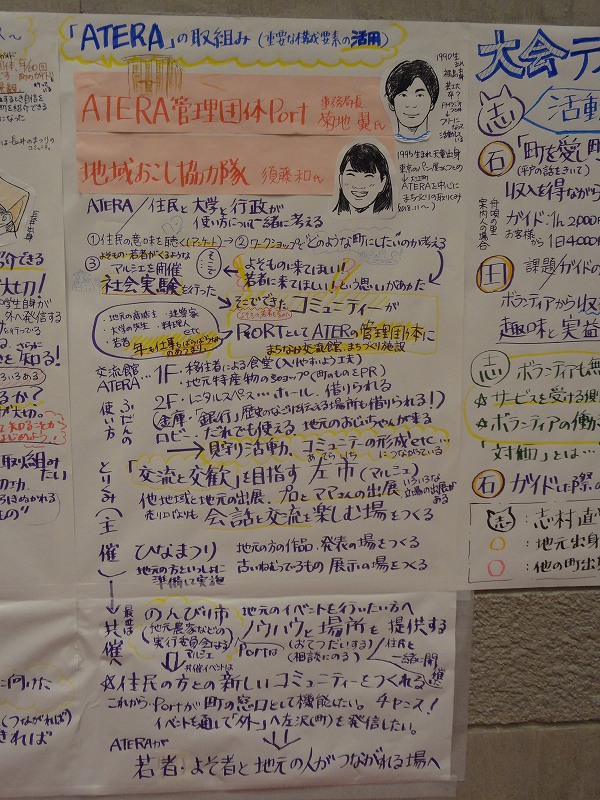 「ATERA」の取組み(重要な構成要素の活用)
ATERA管理団体Port 事務局長 菊地 翼氏
1990生まれ
地域おこし協力隊 須藤和氏
1995生まれ 天童出身
東京のパン屋さんつとめ
ATERAを中心に
まちづくりの取り組み
2018.11〜)
ATERA/住民と大学と行政が
使い方について一緒に考える
①住民の意味を聴く(アンケート)→②ワークショップで"どのような町にしたいのか"考える
③よそもの・若者がくるような
マルシェを開催
そこで
社会実験を行った
よそものに来てほしい!
若者に来てほしい!という思いがあった
・地元の商店主・建築家
・大学の先生・料理人
・若者 などなど
年も仕事もばらばらな
そこでできた コミュニティーが
PORTとしてATERAの管理団体に
まちなか交流館、まちづくり施設
交流館
ATERA…
1F・移住者による食堂(入りやすいよう工夫)
・地元特産物のショップ(町のものをPR)
2F・レンタルスペース…ホール、借りられる
(金庫・「銀行」歴史のなごりがみえる場所も借りられる!)
ロビー、だれでも使える 地元のおじいちゃんが来る
→見守り活動、コミュニティーの形成etc…
につながっている
ふだんの使い方
とりくみ(主催)
「交流と交歓」を目指す 左市(マルシェ)
あてらいち
他地域と地元の出展、プロとアマさんの出展
いろいろな立場の出展がある
売り上げよりも 会話と交流を楽しむ場をつくる
ひなまつり 地元の方の作品、発表の場をつくる
地元の方といっしょに
準備して実施
古いねむっているもの 展示の場をつくる
最近は
共催へ
のんびり市 地元のイベントを行いたい方へ
(地元農家などの
実行委員会による
マルシェ
Portは ノウハウと場所を提供する
(おてつだいする)
(相談にのる)
住民と
一緒に開催
共催イベントは
☆住民の方との新しいコミュニティーをつくれる
これから・Portが町の窓口として機能したい。チャンス!
イベントを通して「外」へ左沢(町)を発信したい。
ATERAが
若者・よそ者と地元の人がつながれる場へ
大会テ
活動
石 「町を愛し町
(平戸の話をきいて)
収入を得ながら
舟唄の里
案内人の場合
ガイド:1h 2,000円
お客様から 1日4000円
田 課題/ガイドの
ボランティアから収
趣味と実益
志 ボランティアも無
☆サービスを受ける側
☆ボランティアの働
「対価」とは…
石 ガイドした際の
:志村直
:地元出身
:他の町出身
介できる
大切!
学生自身が
外へ発信する
を行っている
さらに
を知る!
るか?
が大切。
取り組み
たい
に向けた
(つながれば)
きれば